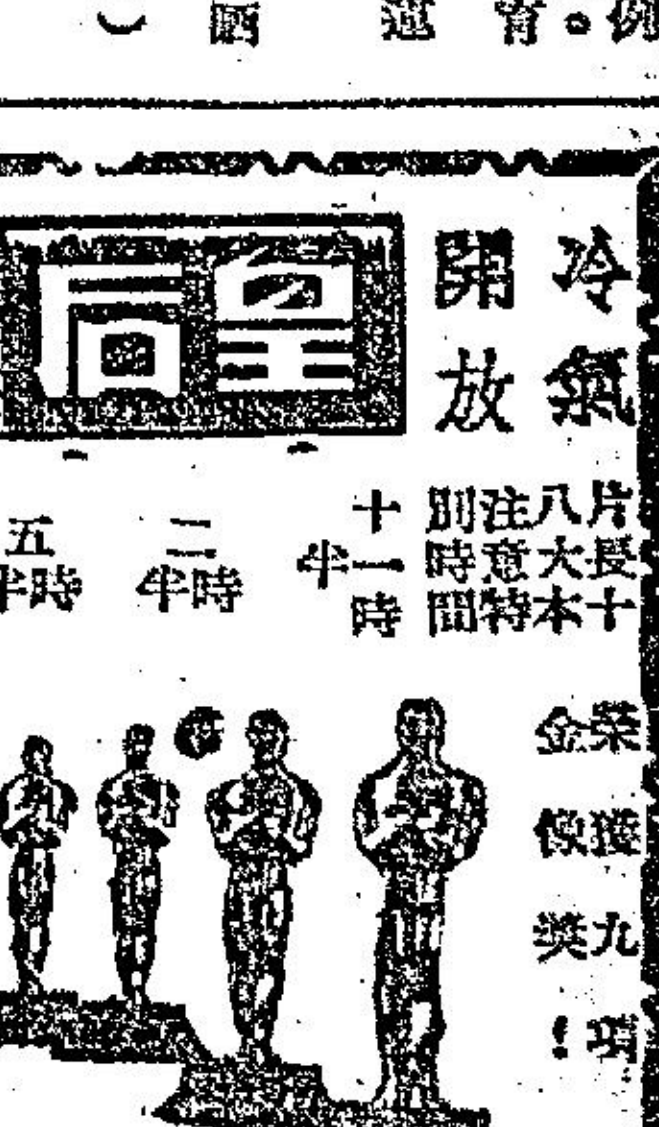 例
。育
運
冷氣
開放
皇后
片長十
八大本
注意特
別時間
十一時半
二時半
五時半
榮獲九項
金像獎!